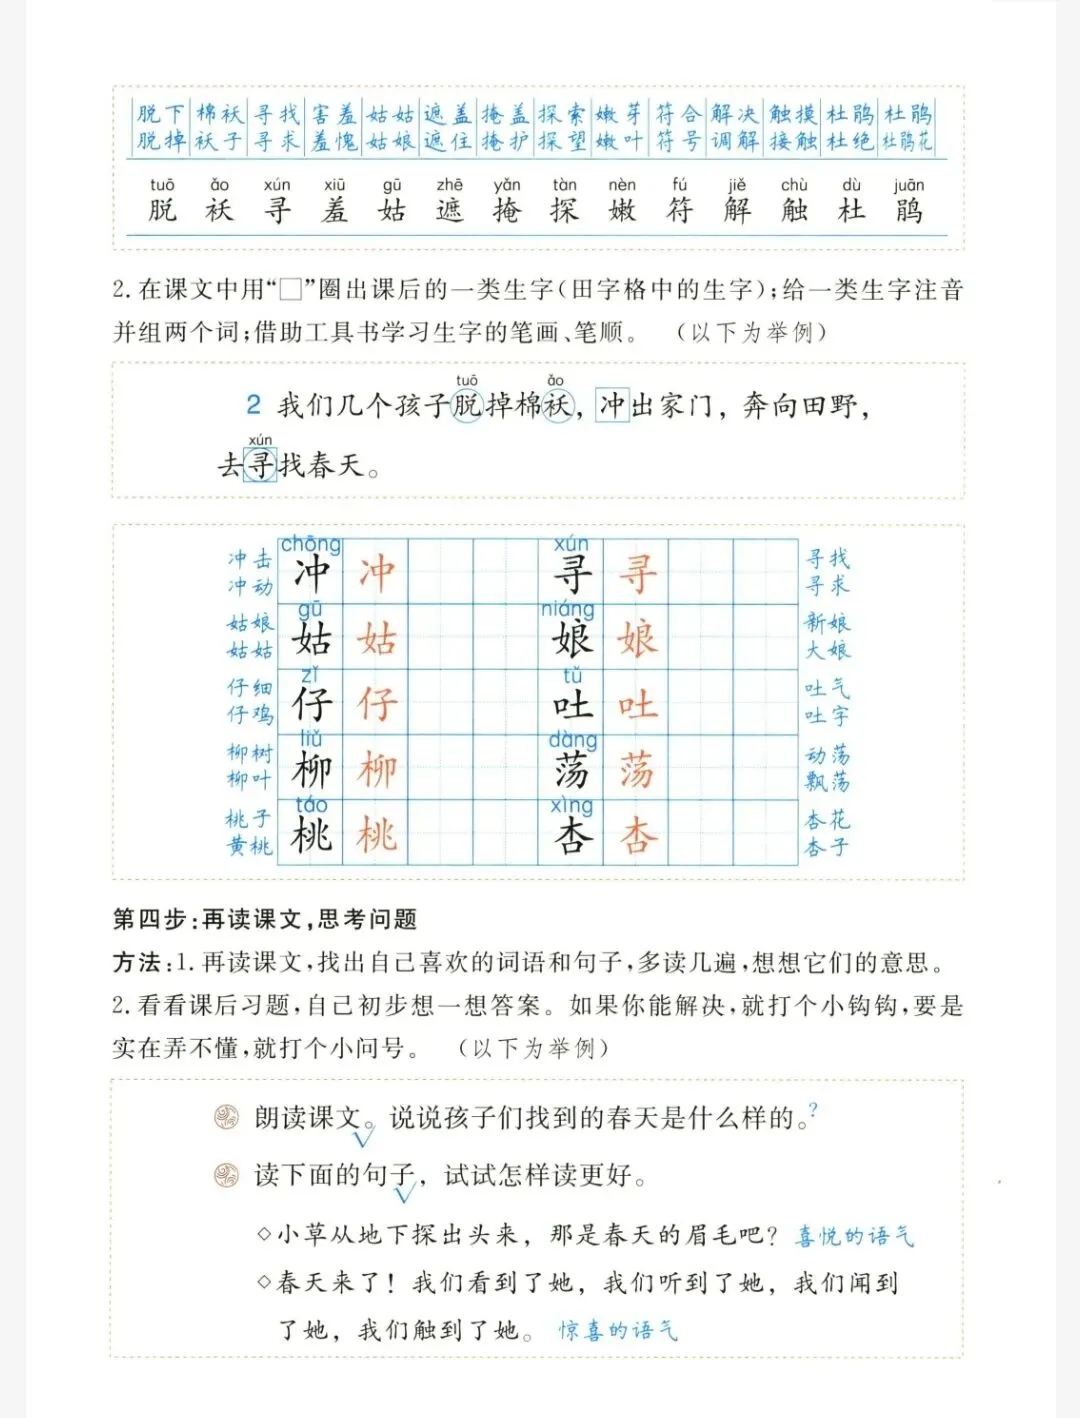 脱下 棉袄 寻找 害羞 姑姑 遮盖 掩盖 探索 嫩芽 符合 解决 触摸 杜鹃 杜鹃
脱掉 袄子 寻求 羞愧 姑娘 遮住 掩护 探望 嫩叶 符号 调解 接触 杜绝 杜鹃花
tuō ǎo xún xiū gū zhē yǎn tàn nèn fú jiě chù dù juān
脱 袄 寻 羞 姑 遮 掩 探 嫩 符 解 触 杜 鹃
2. 在课文中用“□”圈出课后的一类生字(田字格中的生字);给一类生字注音
并组两个词;借助工具书学习生字的笔画、笔顺。 (以下为举例)
tuō ǎo
2 我们几个孩子脱掉棉袄，冲出家门，奔向田野，
xún
去寻找春天。
chōng xún
冲击 冲 冲 寻 寻 寻找
冲动 寻求
gū niáng
姑娘 姑 姑 娘 娘 新娘
姑姑 大娘
zǐ tǔ
仔细 仔 仔 吐 吐 吐气
仔鸡 吐字
liǔ dàng
柳树 柳 柳 荡 荡 动荡
柳叶 飘荡
táo xìng
桃子 桃 桃 杏 杏 杏花
黄桃 杏子
第四步:再读课文,思考问题
方法:1. 再读课文,找出自己喜欢的词语和句子,多读几遍,想想它们的意思。
2. 看看课后习题,自己初步想一想答案。如果你能解决,就打个小钩钩,要是
实在弄不懂,就打个小问号。 (以下为举例)
朗读课文。说说孩子们找到的春天是什么样的。?
√
读下面的句子，试试怎样读更好。
√
◇小草从地下探出头来，那是春天的眉毛吧？ 喜悦的语气
◇春天来了！我们看到了她，我们听到了她，我们闻到
了她，我们触到了她。 惊喜的语气